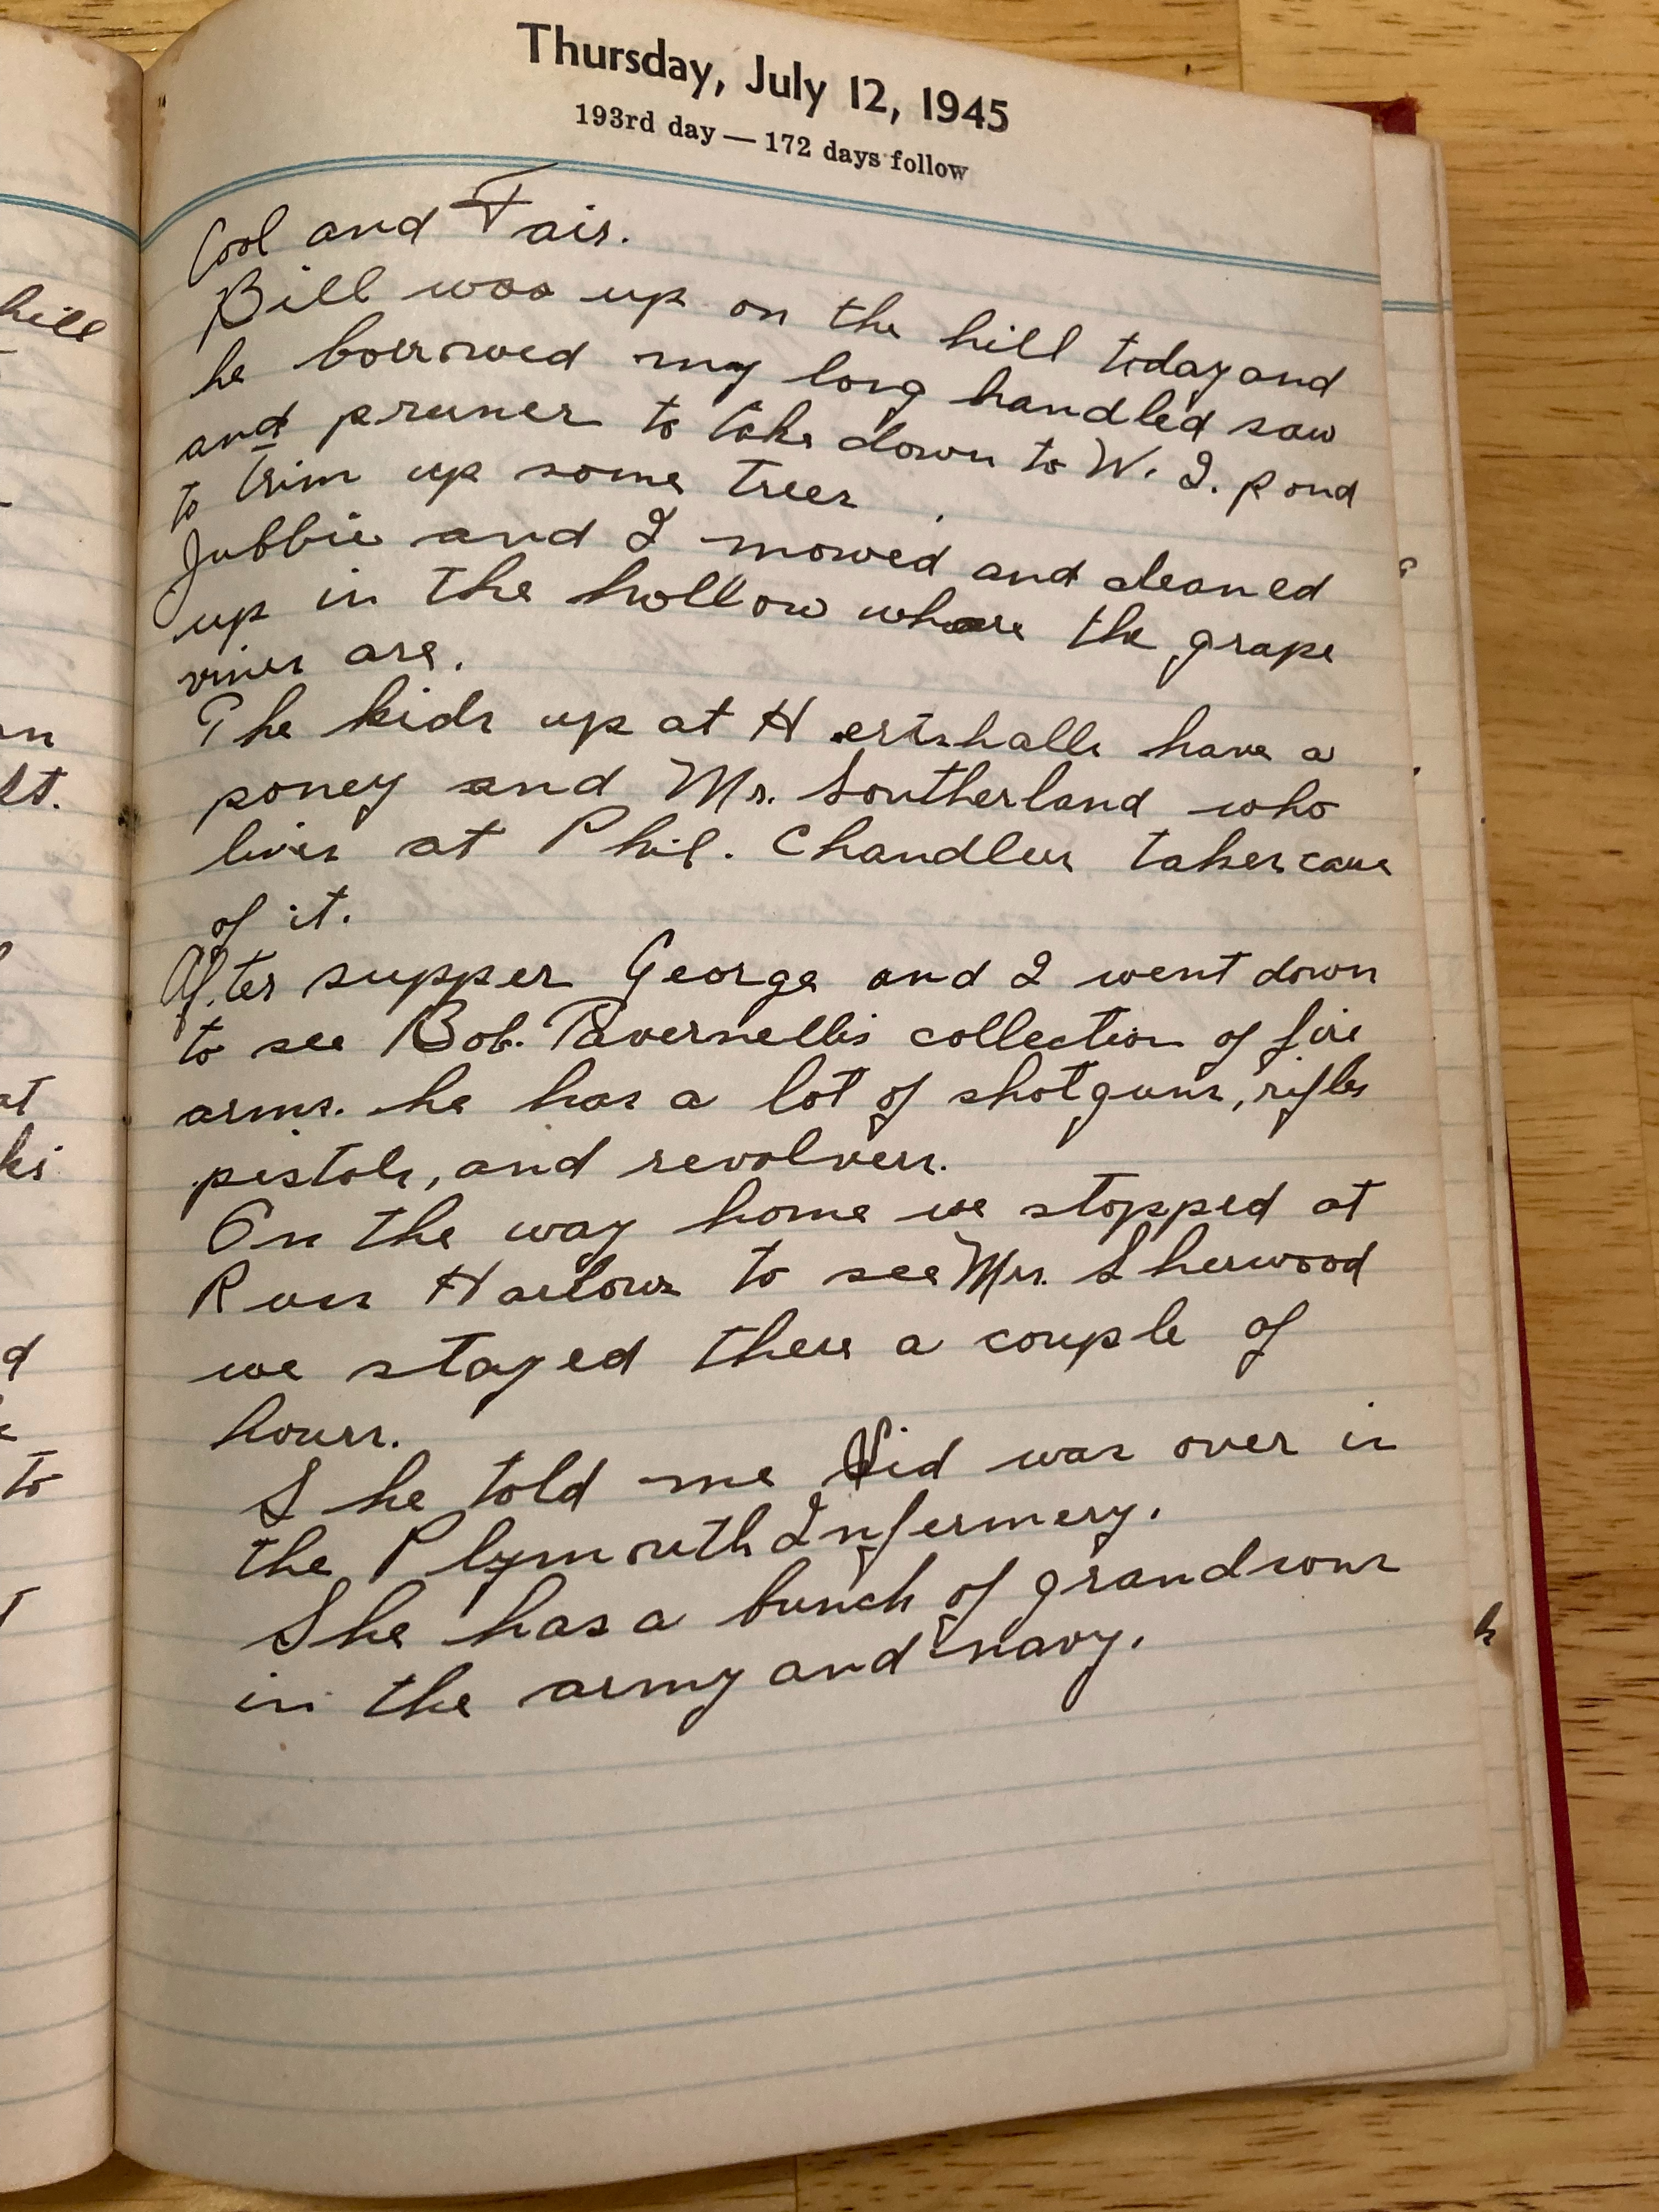 Thursday, July 12, 1945
193rd day — 172 days follow
Cool and Fair.
Bill was up on the hill today and
he borrowed my long handled saw
and pruner to take down to W. I. pond
to trim up some trees
Jubbie and I mowed and cleaned
up in the hollow where the grape
vines are.
The kids up at have a
poney and Mr. Southerland who
lives at Phil. Chandlers takes care
of it.
After supper George and I went down
to see Bob. Tavernellis collection of fire
arms. he has a lot of shotguns, rifles
pistols, and revolvers.
On the way home we stopped at
Russ Harlows to see Mrs. Sherwood
we stayed there a couple of
hours.
She told me Sid was over in
the Plymouth Infermery.
She has a bunch of grandsons
in the army and navy.
hill